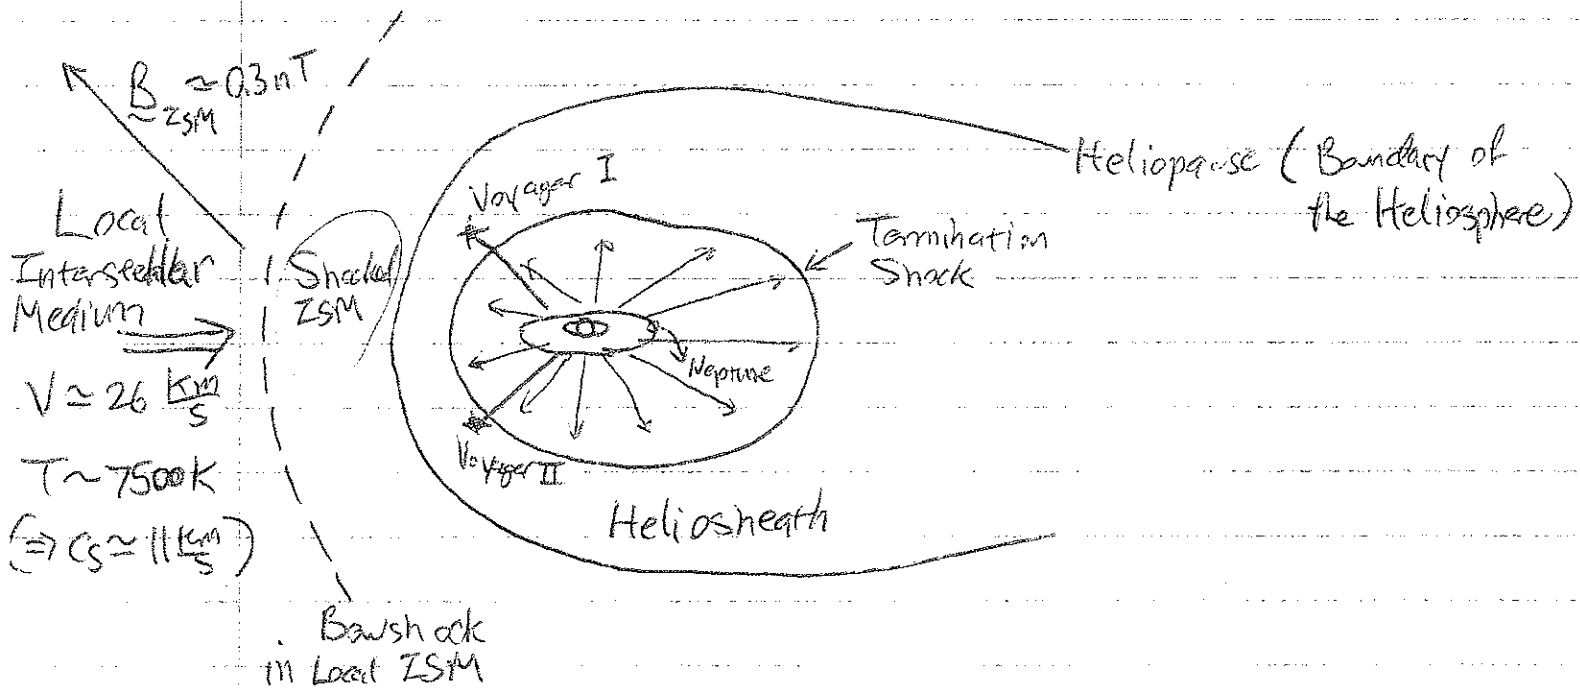 B_ISM ≃ 0.3 nT
Local
Interstellar
Medium
V ≃ 26 km/s
T ~ 7500K
(⇒ Cs ≃ 11 km/s)
Shocked
ISM
Bowshock
in Local ISM
Voyager I
Voyager II
Neptune
Termination
Shock
Heliosheath
Heliopause (Boundary of
the Heliosphere)